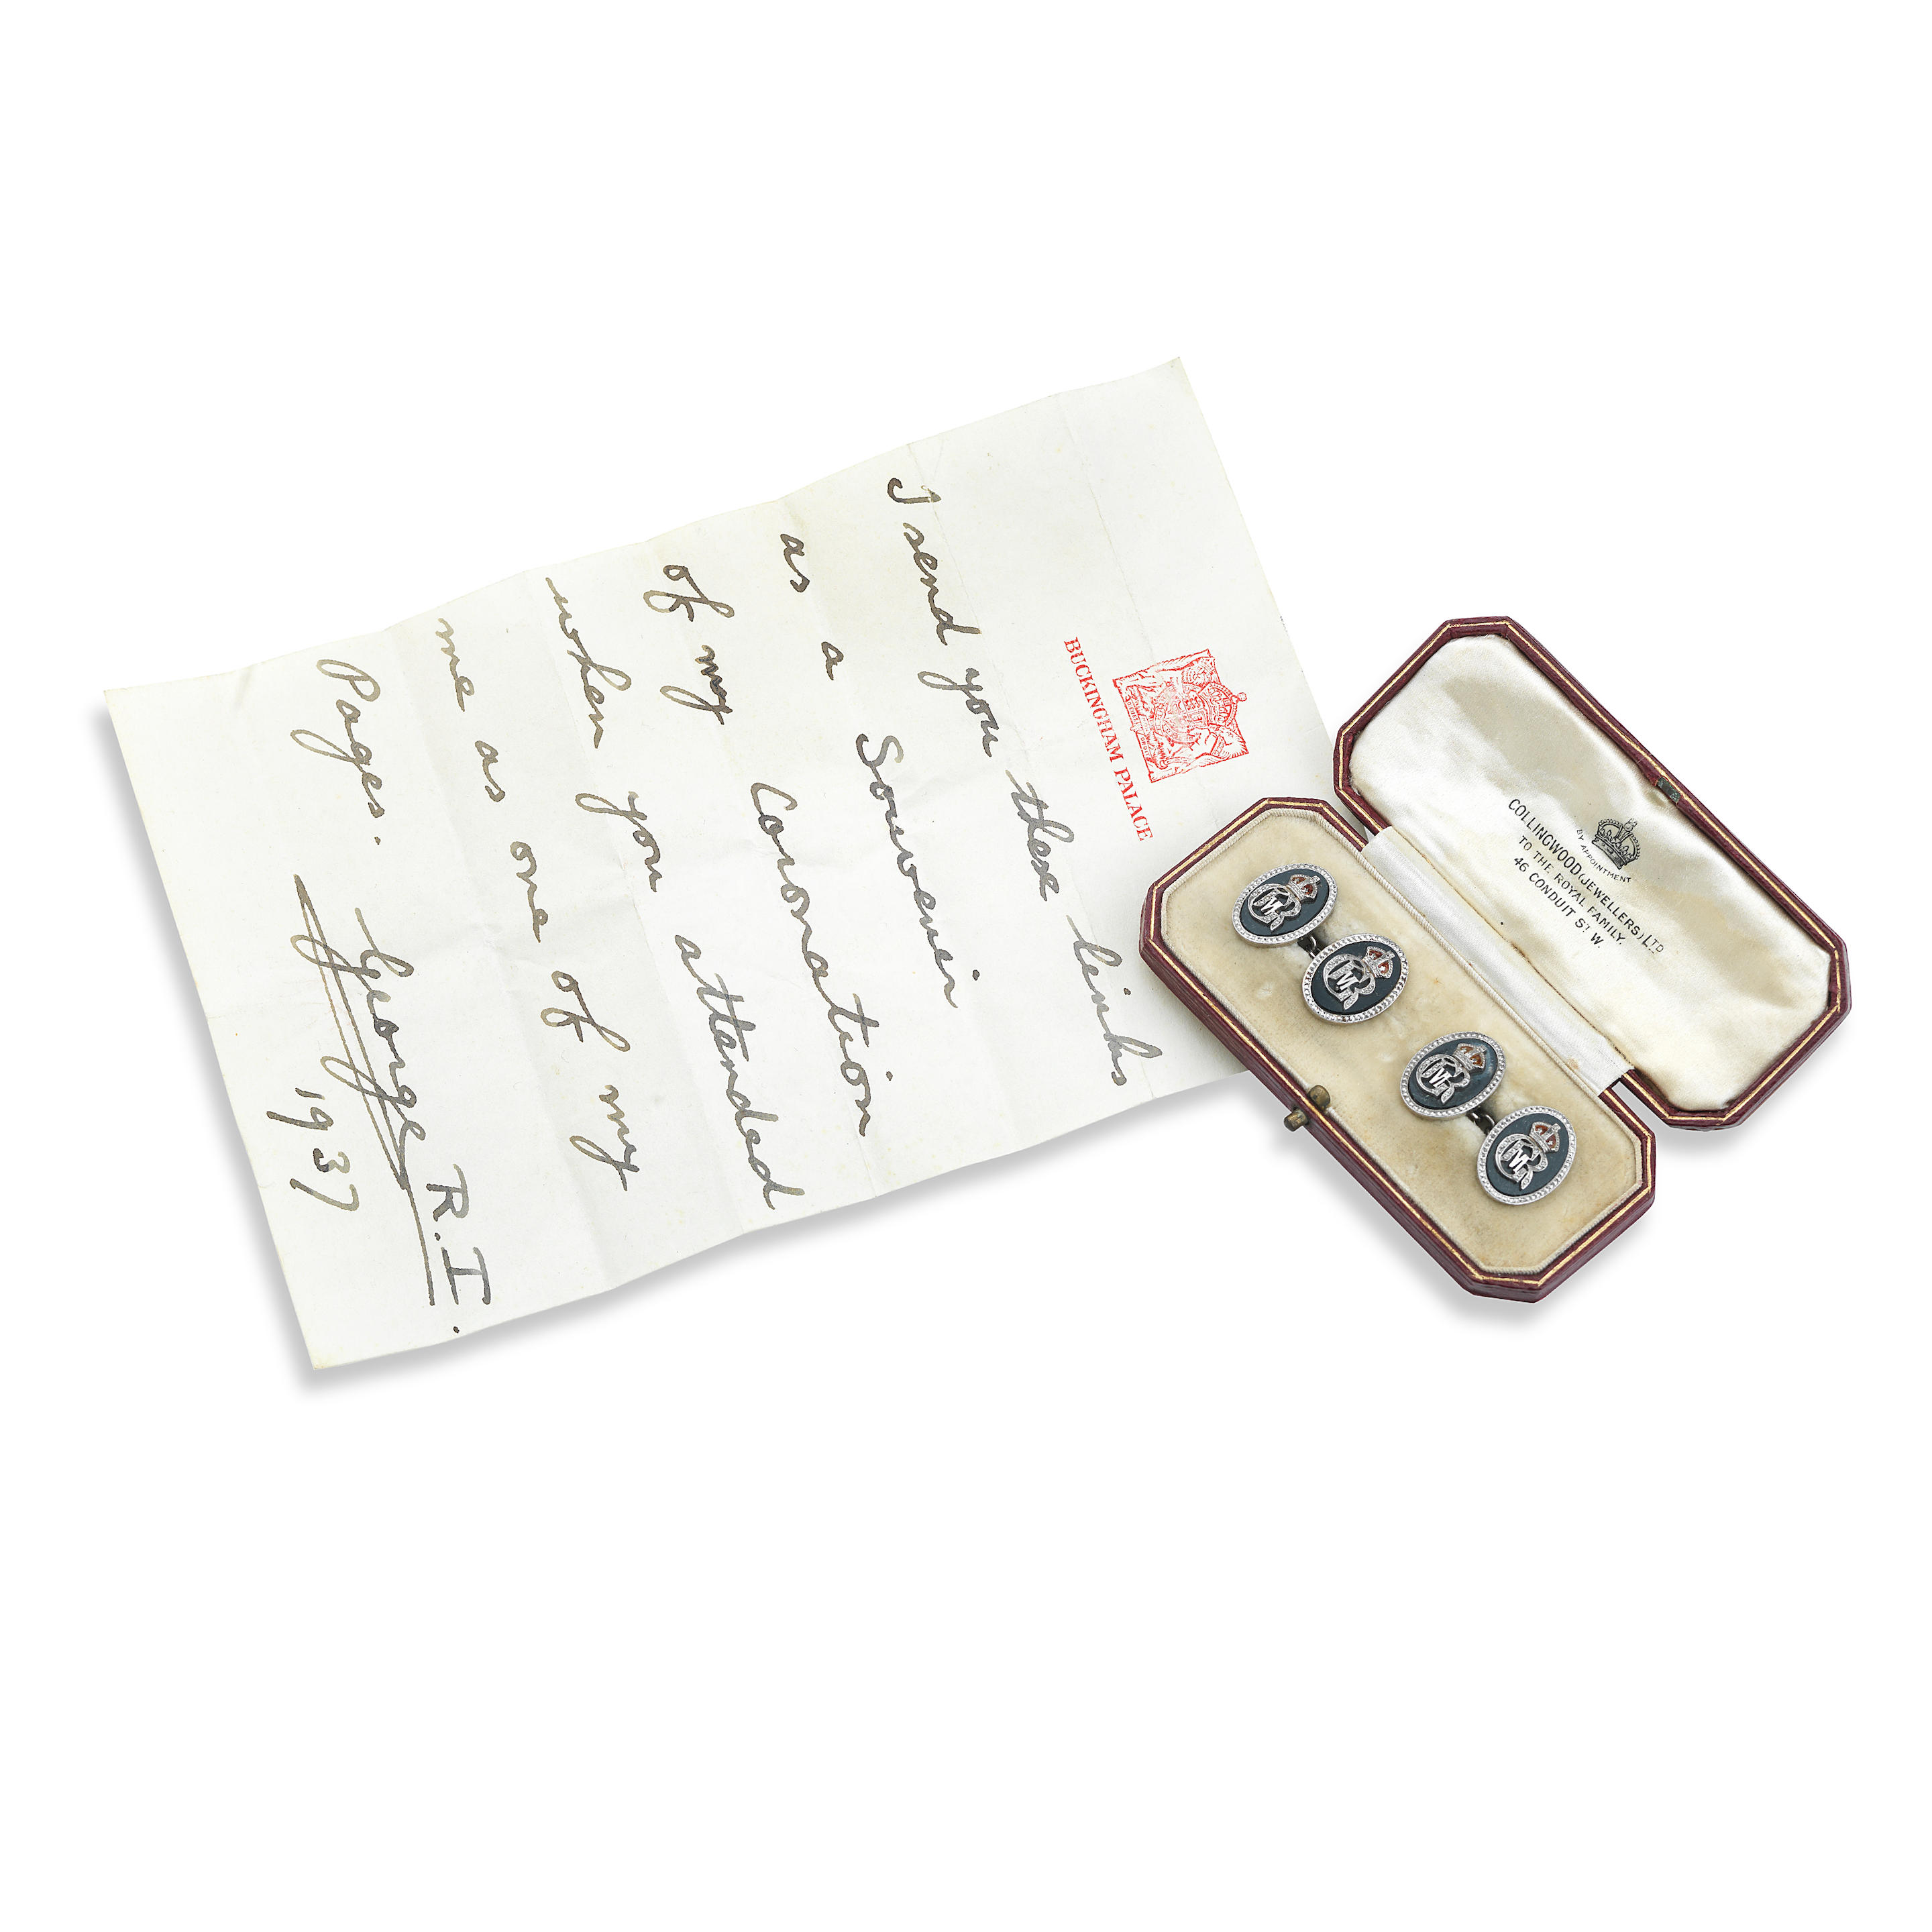 BUCKINGHAM PALACE
I send you these links
as a Souvenir
of my Coronation
when you attended
me as one of my
Pages.
George R.I.
1937
BY APPOINTMENT
COLLINGWOOD (JEWELLERS) LTD
TO THE ROYAL FAMILY.
46 CONDUIT ST. W.
GVIR
GVIR
GVIR
GVIR